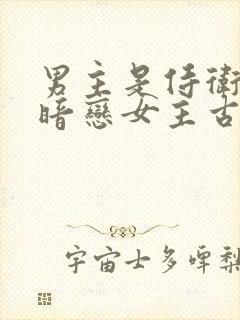 男主是侍衛
暗戀女主古
宇宙士多啤梨